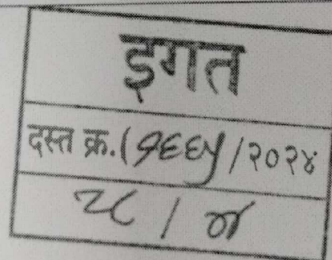 इगत
दस्त क्र.(१९६५/२०२४
२८ /